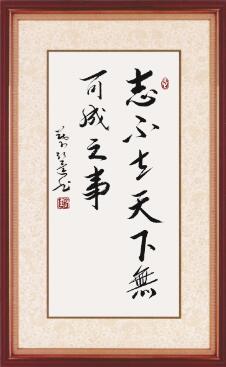 志不立天下無
可成之事